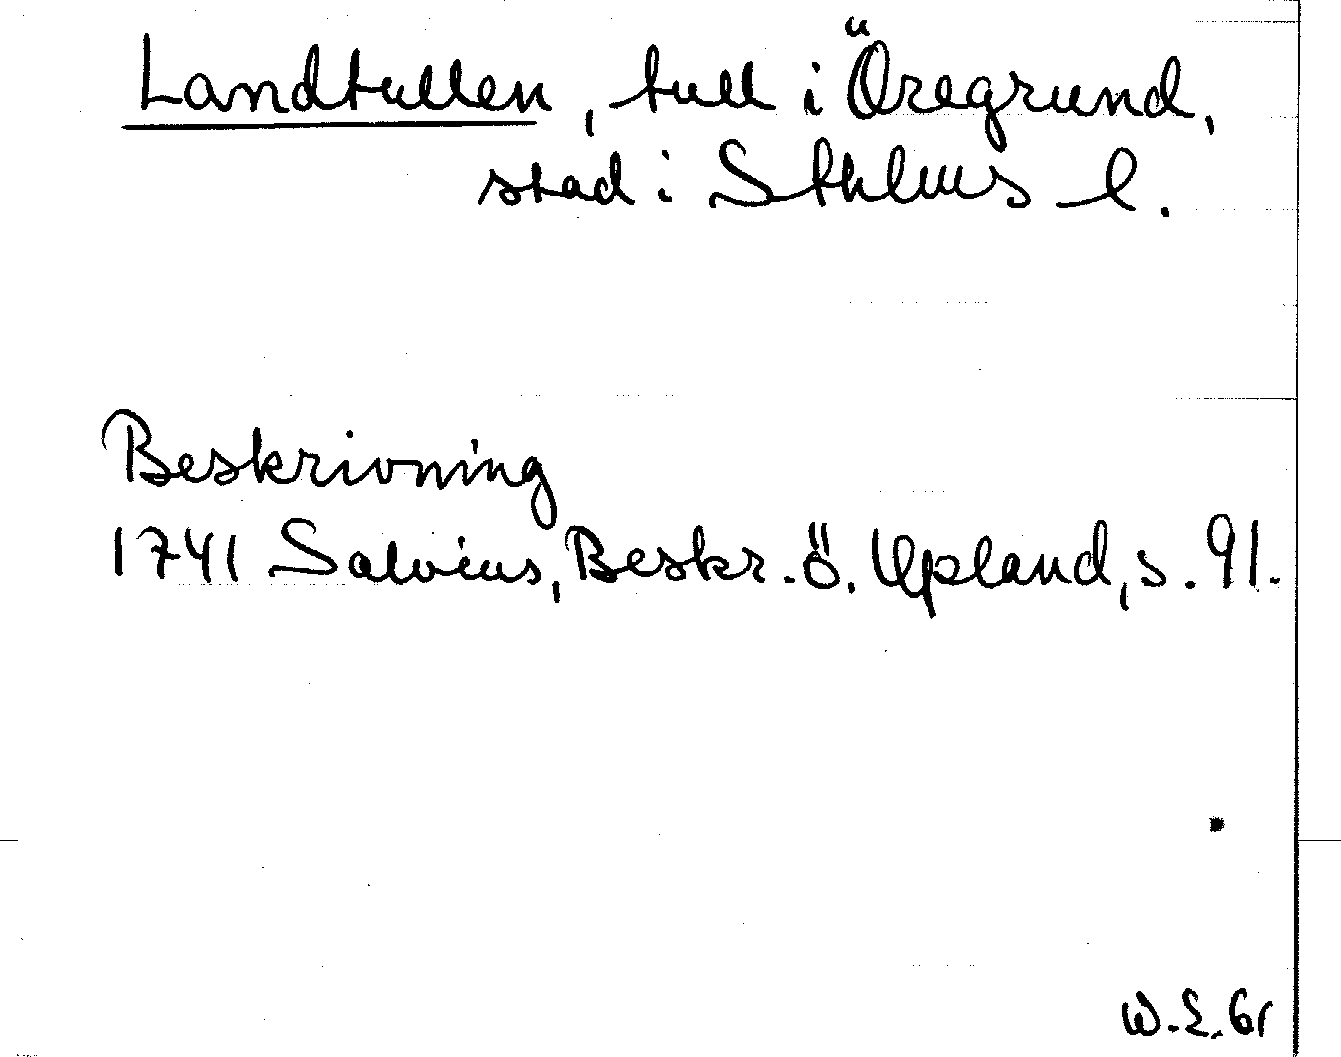 Landtullen, tull i Öregrund,
stad i Sthlms l.
Beskrivning
1741 Salvius, Beskr. ö. Upland, s. 91.
W.E. 61